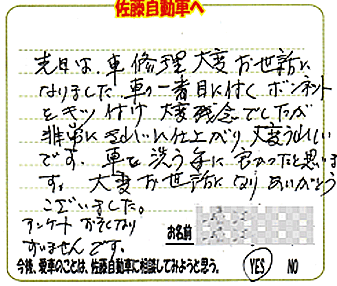 佐藤自動車へ
先日は、車修理大変お世話に
なりました。車の一番目に付くボンネット
をキツ付け大変残念でしたが
非常にきれいに仕上がり大変うれしい
です。車を洗う毎に良かったと思いま
す。大変お世話になりありがとう
ございました。
アンケートおそくなり
すいませんです。
お名前
今後、愛車のことは、佐藤自動車に相談してみようと思う。 YES NO